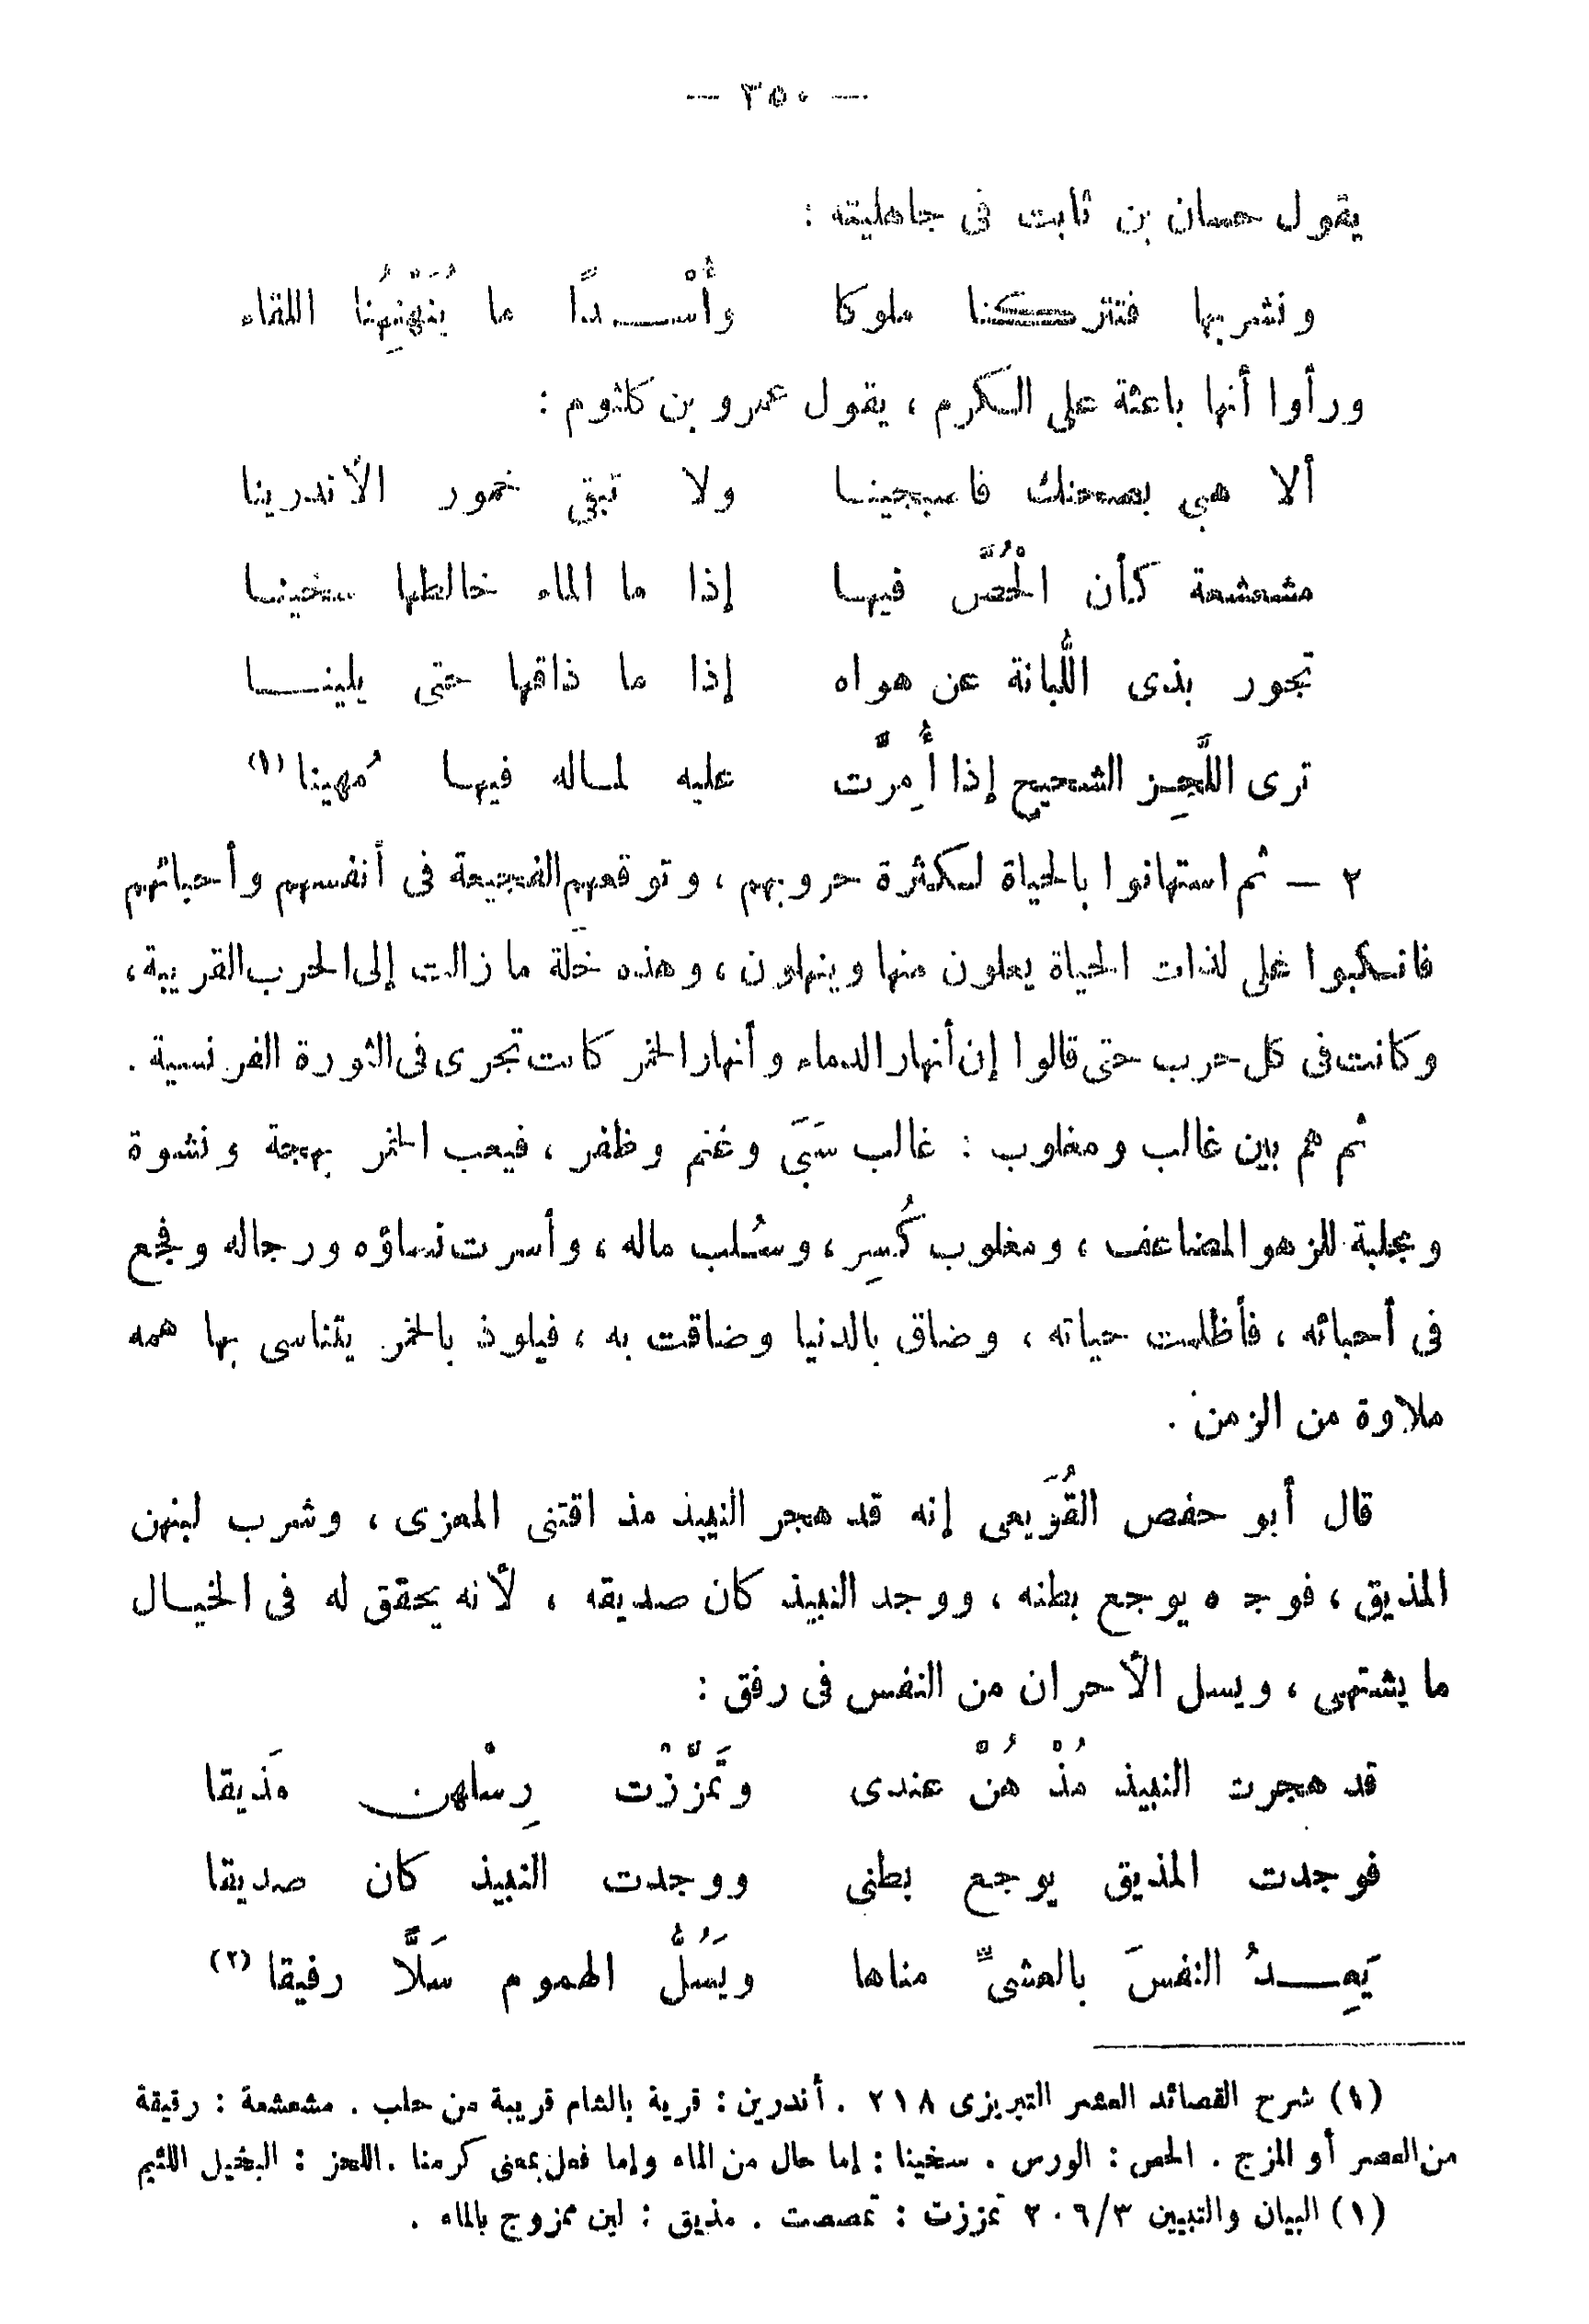 — ٣٥٠ —
يقول حسان بن ثابت فى جاهليته :
ونشربها فتتركنا ملوكا وأُسْدًا ما يُنَهْنِهُنا اللقاء
ورأوا أنها باعثة على الكرم ، يقول عمرو بن كلثوم :
ألا هبى بصحنك فاصبحينا ولا تبقى خمور الأندرينا
مشعشعة كأن الْحُصَّ فيها إذا ما الماء خالطها سخينا
تجور بذى اللُّبانة عن هواه إذا ما ذاقها حتى يلينا
ترى اللَّحِز الشحيح إذا أُمِرَّت عليه لماله فيها مُهينا (١)
٢ – ثم استهانوا بالحياة لكثرة حروبهم ، وتوقعهم الفجيعة فى أنفسهم وأحبائهم
فانكبوا على لذات الحياة يعلون منها وينهلون ، وهذه خَلة ما زالت إلى الحرب القريبة ،
وكانت فى كل حرب حتى قالوا إن أنهار الدماء وأنهار الخمر كانت تجرى فى الثورة الفرنسية .
ثم هم بين غالب ومغلوب : غالب سَبَى وغنم وظفر ، فيعب الخمر بهجة ونشوة
ومجلبة للزهو المضاعف ، ومغلوب كُسِر ، وسُلب ماله ، وأسرت نساؤه ورجاله وفجع
فى أحبائه ، فأظلمت حياته ، وضاق بالدنيا وضاقت به ، فيلوذ بالخمر يتناسى بها همه
ملاوة من الزمن .
قال أبو حفص القُرَيعى إنه قد هجر النبيذ مذ اقتنى المعزى ، وشرب لبنهن
المذيق ، فوجـ ه يوجع بطنه ، ووجد النبيذ كان صديقه ، لأنه يحقق له فى الخيال
ما يشتهى ، ويسل الأحزان من النفس فى رفق :
قد هجرت النبيذ مُذْ هُنْ عندى وتَمَزَّزْت رِسْلهن مَذيقا
فوجدت المذيق يوجع بطنى ووجدت النبيذ كان صديقا
يَعِدُ النفسَ بالعشىِّ مناها ويَسُلُّ الهموم سَلًّا رفيقا (٢)
(١) شرح القصائد العشر التبريزى ٢١٨ . أندرين : قرية بالشام قريبة من حلب . مشعشعة : رقيقة
من العصر أو المزج . الحص : الورس . سخينا : إما حال من الماء وإما فعل بمعنى كرمنا . اللحز : البخيل اللئيم
(١) البيان والتبيين ٣/٢٠٦ تمززت : تمصصت . مذيق : لبن ممزوج بالماء .